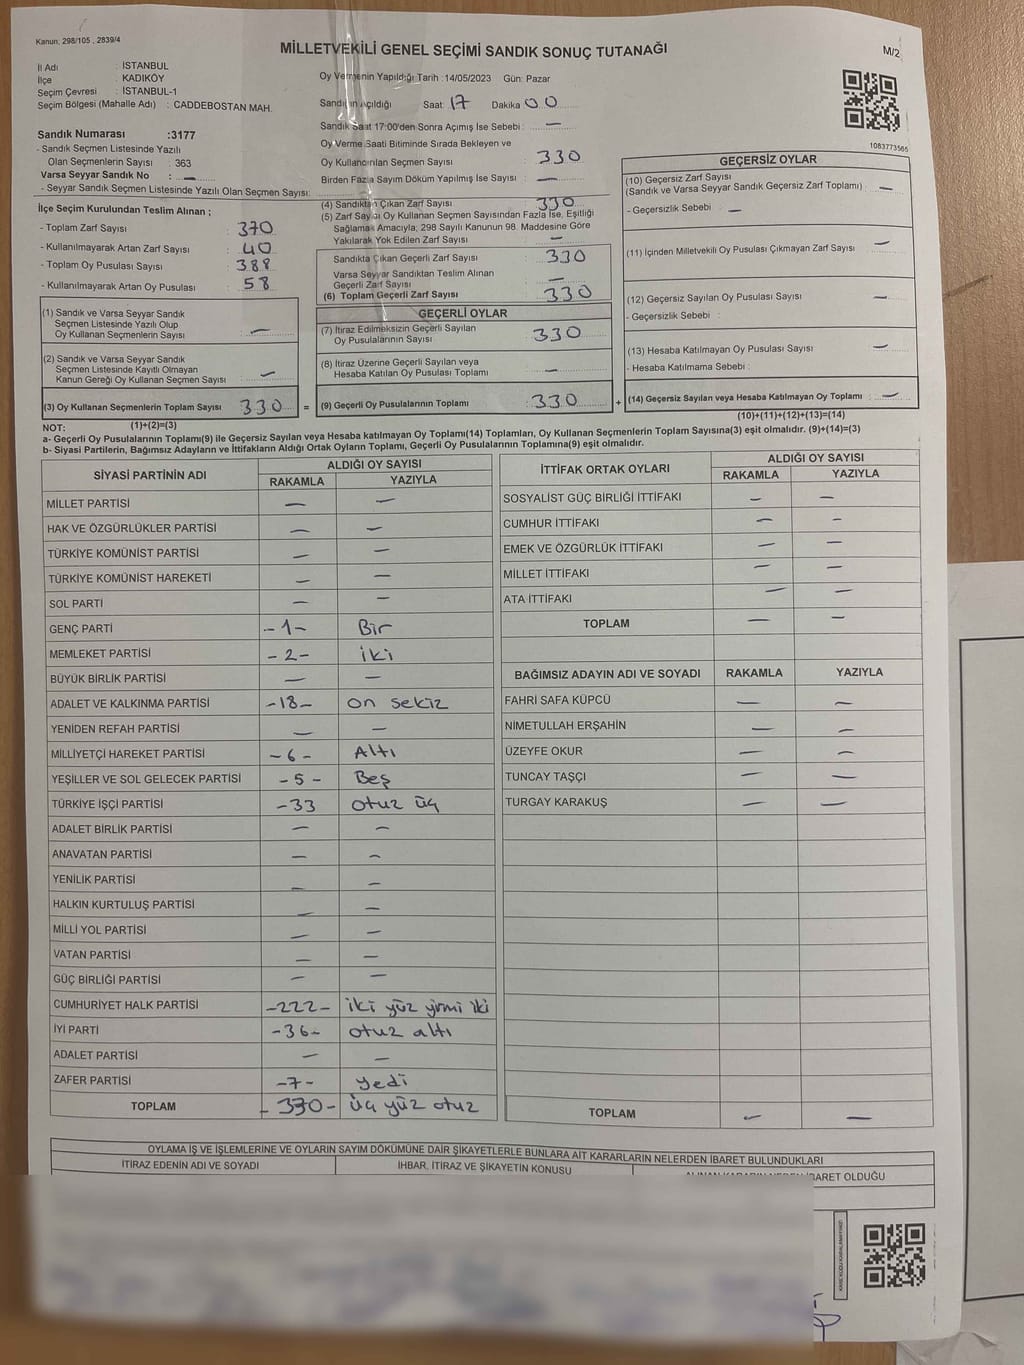 Kanun; 298/105 , 2839/4
MİLLETVEKİLİ GENEL SEÇİMİ SANDIK SONUÇ TUTANAĞI
M/2
İl Adı : İSTANBUL
İlçe : KADIKÖY
Seçim Çevresi : İSTANBUL-1
Seçim Bölgesi (Mahalle Adı) : CADDEBOSTAN MAH.
Oy Vermenin Yapıldığı Tarih :14/05/2023 Gün: Pazar
Sandığın Açıldığı Saat: 17 Dakika 00
Sandık Saat 17:00'den Sonra Açımış İse Sebebi : —
Oy Verme Saati Bitiminde Sırada Bekleyen ve
Oy Kullandırılan Seçmen Sayısı : 330
Birden Fazla Sayım Döküm Yapılmış İse Sayısı : —
1083773565
Sandık Numarası :3177
- Sandık Seçmen Listesinde Yazılı
Olan Seçmenlerin Sayısı : 363
Varsa Seyyar Sandık No : —
- Seyyar Sandık Seçmen Listesinde Yazılı Olan Seçmen Sayısı:
İlçe Seçim Kurulundan Teslim Alınan ;
- Toplam Zarf Sayısı : 370
- Kullanılmayarak Artan Zarf Sayısı : 40
- Toplam Oy Pusulası Sayısı : 388
- Kullanılmayarak Artan Oy Pusulası : 58
(1) Sandık ve Varsa Seyyar Sandık
Seçmen Listesinde Yazılı Olup
Oy Kullanan Seçmenlerin Sayısı : —
(2) Sandık ve Varsa Seyyar Sandık
Seçmen Listesinde Kayıtlı Olmayan
Kanun Gereği Oy Kullanan Seçmen Sayısı : —
(3) Oy Kullanan Seçmenlerin Toplam Sayısı 330 =
(1)+(2)=(3)
(4) Sandıktan Çıkan Zarf Sayısı : 330
(5) Zarf Sayısı Oy Kullanan Seçmen Sayısından Fazla İse, Eşitliği
Sağlamak Amacıyla; 298 Sayılı Kanunun 98. Maddesine Göre
Yakılarak Yok Edilen Zarf Sayısı : —
Sandıkta Çıkan Geçerli Zarf Sayısı : 330
Varsa Seyyar Sandıktan Teslim Alınan
Geçerli Zarf Sayısı : —
(6) Toplam Geçerli Zarf Sayısı : 330
GEÇERLİ OYLAR
(7) İtiraz Edilmeksizin Geçerli Sayılan
Oy Pusulalarının Sayısı : 330
(8) İtiraz Üzerine Geçerli Sayılan veya
Hesaba Katılan Oy Pusulası Toplamı : —
(9) Geçerli Oy Pusulalarının Toplamı : 330 +
GEÇERSİZ OYLAR
(10) Geçersiz Zarf Sayısı
(Sandık ve Varsa Seyyar Sandık Geçersiz Zarf Toplamı) : —
- Geçersizlik Sebebi : —
(11) İçinden Milletvekili Oy Pusulası Çıkmayan Zarf Sayısı : —
(12) Geçersiz Sayılan Oy Pusulası Sayısı : —
- Geçersizlik Sebebi :
(13) Hesaba Katılmayan Oy Pusulası Sayısı : —
- Hesaba Katılmama Sebebi :
(14) Geçersiz Sayılan veya Hesaba Katılmayan Oy Toplamı : —
(10)+(11)+(12)+(13)=(14)
NOT:
a- Geçerli Oy Pusulalarının Toplamı(9) ile Geçersiz Sayılan veya Hesaba katılmayan Oy Toplamı(14) Toplamları, Oy Kullanan Seçmenlerin Toplam Sayısına(3) eşit olmalıdır. (9)+(14)=(3)
b- Siyasi Partilerin, Bağımsız Adayların ve İttifakların Aldığı Ortak Oyların Toplamı, Geçerli Oy Pusulalarının Toplamına(9) eşit olmalıdır.
SİYASİ PARTİNİN ADI ALDIĞI OY SAYISI
RAKAMLA YAZIYLA
MİLLET PARTİSİ — —
HAK VE ÖZGÜRLÜKLER PARTİSİ — —
TÜRKİYE KOMÜNİST PARTİSİ — —
TÜRKİYE KOMÜNİST HAREKETİ — —
SOL PARTİ — —
GENÇ PARTİ -1- Bir
MEMLEKET PARTİSİ -2- iki
BÜYÜK BİRLİK PARTİSİ — —
ADALET VE KALKINMA PARTİSİ -18- on sekiz
YENİDEN REFAH PARTİSİ — —
MİLLİYETÇİ HAREKET PARTİSİ -6- Altı
YEŞİLLER VE SOL GELECEK PARTİSİ -5- Beş
TÜRKİYE İŞÇİ PARTİSİ -33 otuz üç
ADALET BİRLİK PARTİSİ — —
ANAVATAN PARTİSİ — —
YENİLİK PARTİSİ — —
HALKIN KURTULUŞ PARTİSİ — —
MİLLİ YOL PARTİSİ — —
VATAN PARTİSİ — —
GÜÇ BİRLİĞİ PARTİSİ — —
CUMHURİYET HALK PARTİSİ -222- iki yüz yirmi iki
İYİ PARTİ -36- otuz altı
ADALET PARTİSİ — —
ZAFER PARTİSİ -7- yedi
TOPLAM - 330- üç yüz otuz
İTTİFAK ORTAK OYLARI ALDIĞI OY SAYISI
RAKAMLA YAZIYLA
SOSYALİST GÜÇ BİRLİĞİ İTTİFAKI — —
CUMHUR İTTİFAKI — —
EMEK VE ÖZGÜRLÜK İTTİFAKI — —
MİLLET İTTİFAKI — —
ATA İTTİFAKI — —
TOPLAM — —
BAĞIMSIZ ADAYIN ADI VE SOYADI RAKAMLA YAZIYLA
FAHRİ SAFA KÜPCÜ — —
NİMETULLAH ERŞAHİN — —
ÜZEYFE OKUR — —
TUNCAY TAŞÇI — —
TURGAY KARAKUŞ — —
TOPLAM — —
OYLAMA İŞ VE İŞLEMLERİNE VE OYLARIN SAYIM DÖKÜMÜNE DAİR ŞİKAYETLERLE BUNLARA AİT KARARLARIN NELERDEN İBARET BULUNDUKLARI
İTİRAZ EDENİN ADI VE SOYADI İHBAR, İTİRAZ VE ŞİKAYETİN KONUSU ALINAN KARARIN NEDEN İBARET OLDUĞU